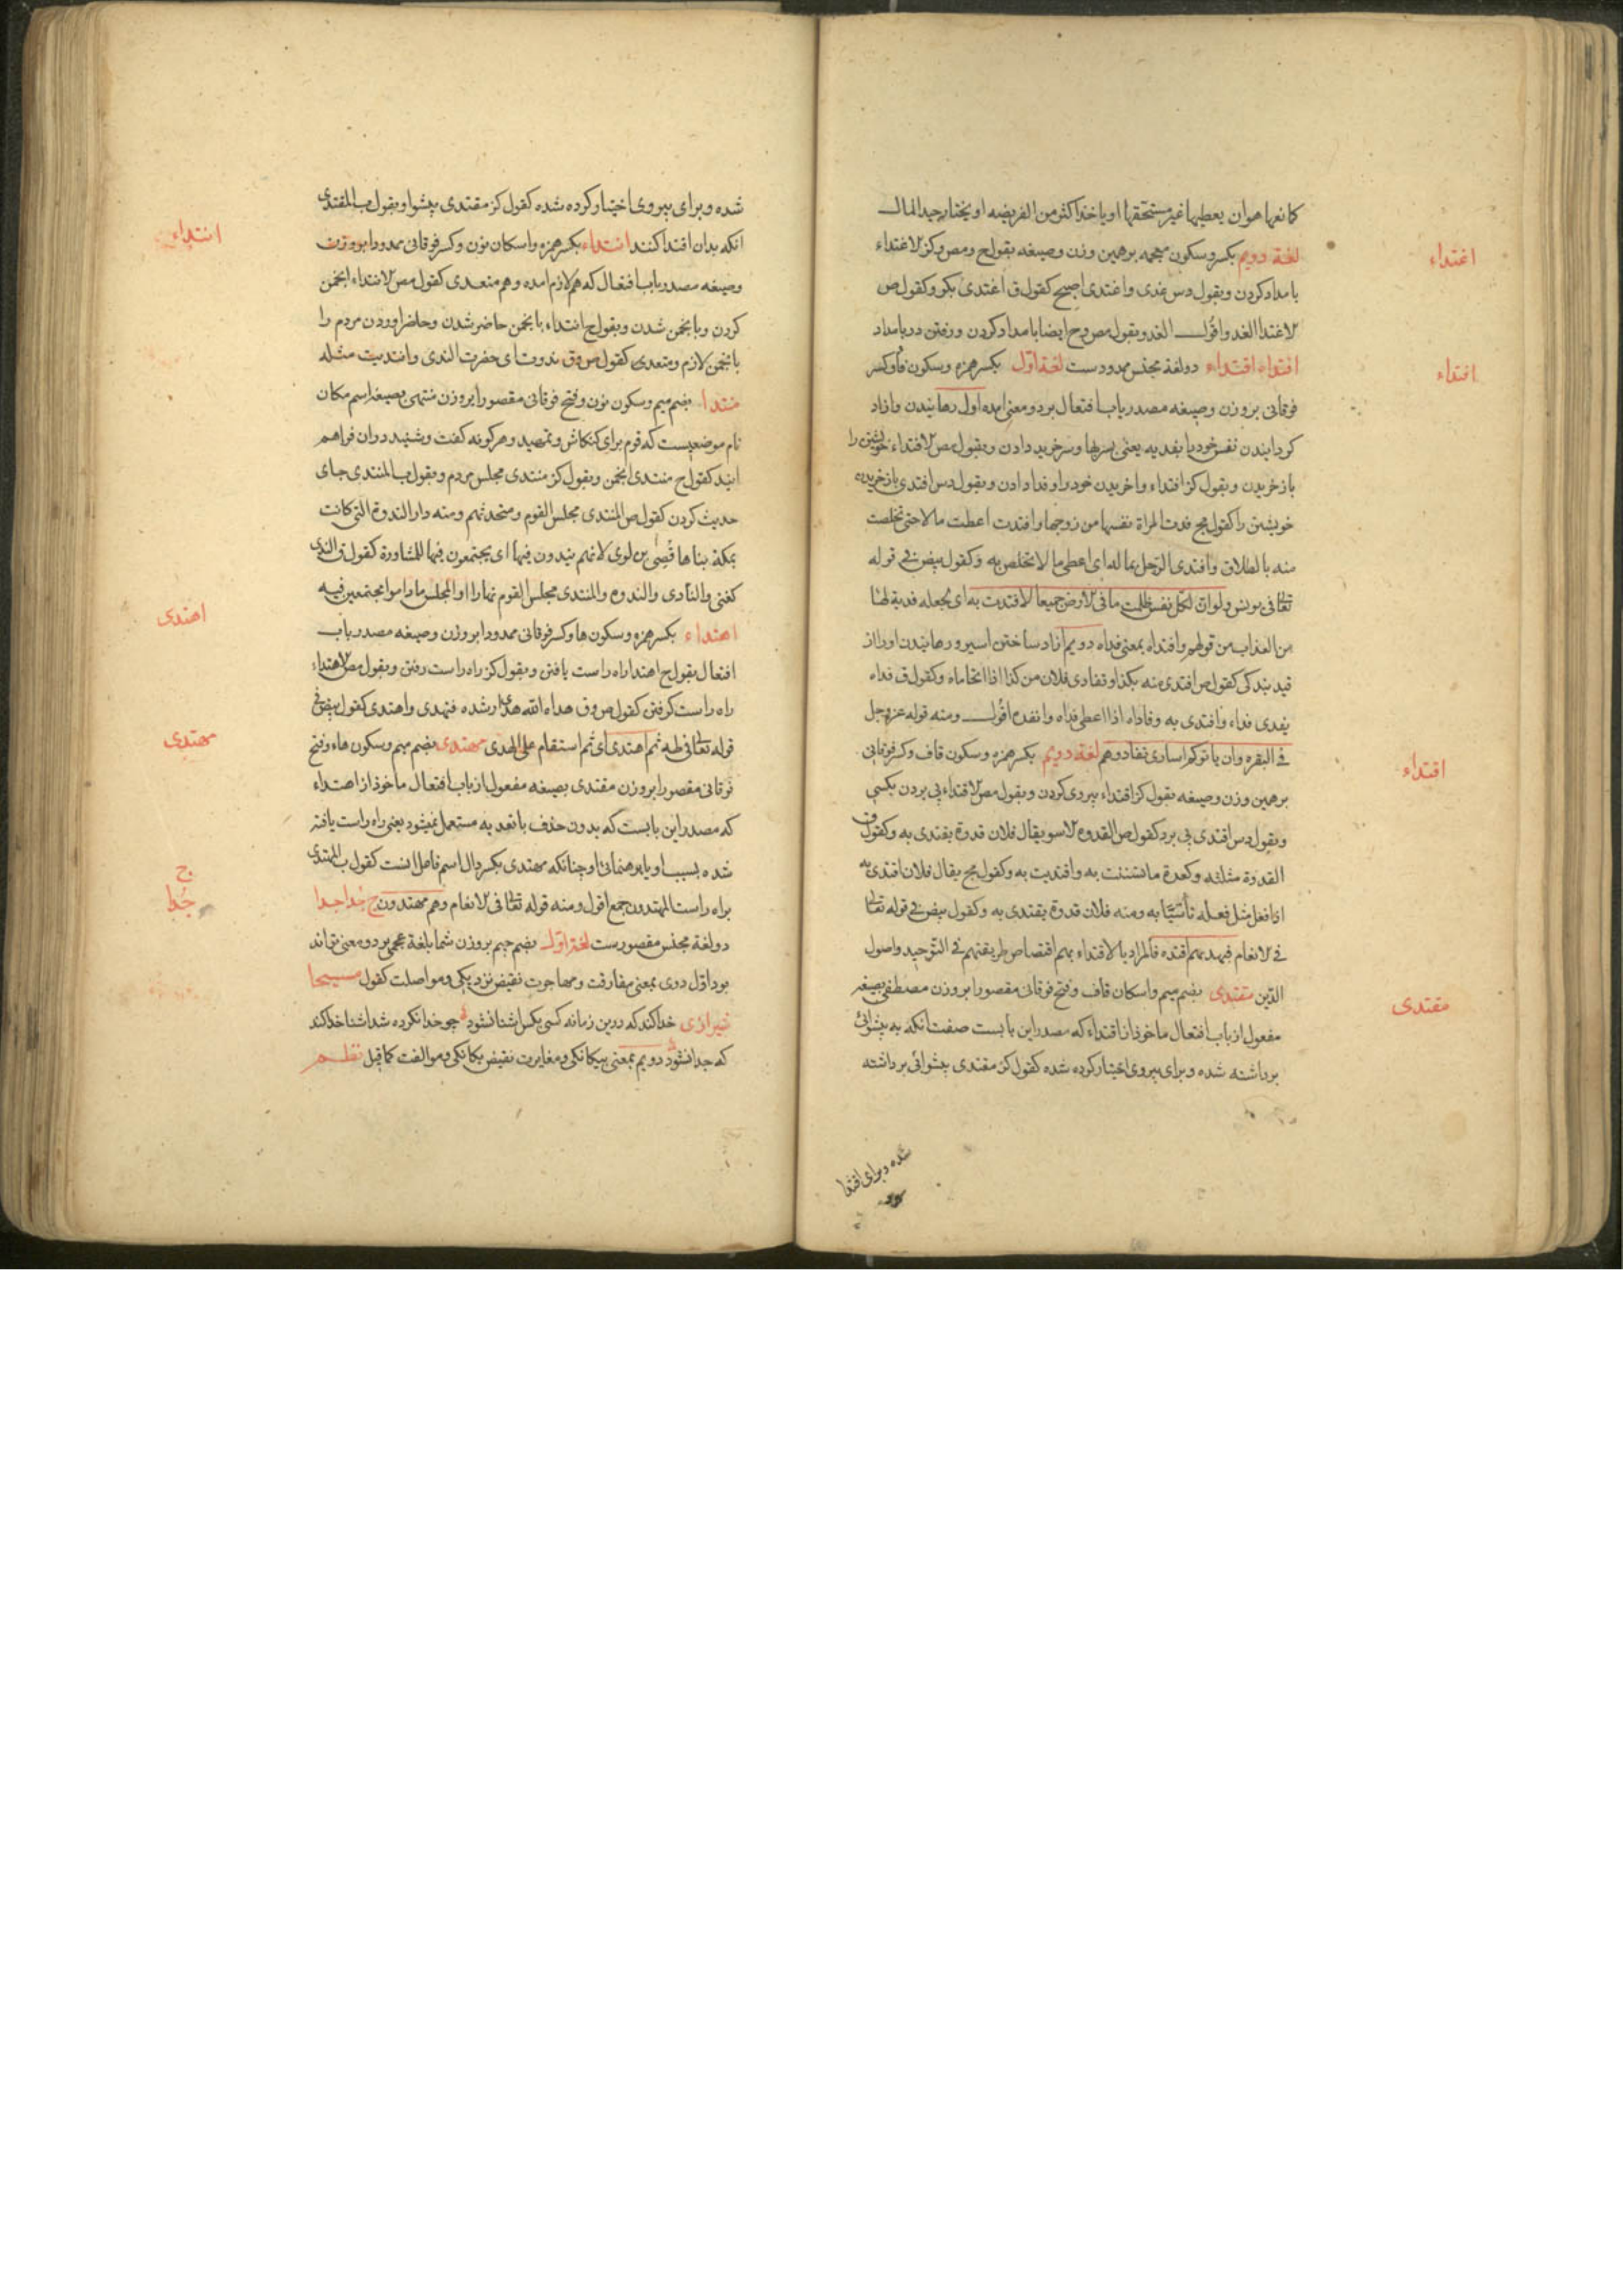 کمانعها هو ان یعطیها غیر مستحقها او یاخذ اکثر من الفریضه او یختار جید المال
لغة دویم بکسر و سکون معجمه بر همین وزن و صیغه بقول ح و مص و کز لاغتداء
اغتداء
بامداد کردن و بقول دس غدی و اغتدی اصبح کقول ق اغتدی بکر و کقول ص
لاغتدا الغد و اقول الغدو بقول مص و ح ایضا بامداد کردن و رفتن در بامداد
افتداء اقتداء دو لغة مجنس ممدودست لغة اول بکسر همزه و سکون فا و کسر
افتداء
فوقانی بر وزن و صیغه مصدر باب افتعال برد و معنی امده اول رهانیدن و ازاد
کردانیدن نفس خود با بفدیه یعنی سربها و سرخرید دادن و بقول مص لافتداء خویشتن را
باز خریدن و بقول کز افتداء واخریدن خود را و فدا دادن و بقول دس افتدی باز خریدن
خویشتن را کقول مج فدت المراة نفسها من زوجها و افتدت اعطت مالا حتی تخلصت
منه بالطلاق و افتدی الرجل بماله ای اعطی مالا تخلص به و کقول بیض فی قوله
تعالی فی یونس ولو ان لکل نفس ظلمت ما فی لارض جمیعا لافتدت به ای لجعله فدیة لها
من العذاب من قولهم و افتداه بمعنی فداه دویم ازاد ساختن اسیر و رهانیدن او را از
قید بندکی کقول ص افتدی منه بکذا و تفادی فلان من کذا اذا اتحاماه و کقول ق فداه
یفدی فداء و افتدی به و فاداه اذا اعطی فداه و انفده اقول و منه قوله عز و جل
فی البقره و ان یاتوکم اساری تفادوهم لغة دویم بکسر همزه و سکون قاف و کسر فوقانی
اقتداء
بر همین وزن و صیغه بقول کز اقتداء پیروی کردن و بقول مص لاقتداء پی بردن بکسی
و بقول دس اقتدی پی برد کقول ص القدوه لاسو یقال فلان قدوة یقتدی به و کقول ق
القدوة مثلثه و کعدة ما تسننت به و اقتدیت به و کقول مج یقال فلان اقتدی به
اذا فعل مثل فعله تأسّیا به و منه فلان قدوة یقتدی به و کقول بیض فی قوله تعالی
فی لانعام فبهدیهم اقتده فالمراد بالاقتداء بهم اقتصاص طریقتهم فی التوحید و اصول
الدین مقتدی بضم میم و اسکان قاف و فتح فوقانی مقصورا بر وزن مصطفی بصیغه
مقتدی
مفعول از باب افتعال ماخوذ از اقتداء که مصدر این بابست صفت انکه به پیشوائی
برداشته شده و برای پیروی اختیار کرده شده کقول کز مقتدی پیشوائی برداشته
شده و برای اقتدا
شده و برای پیروی اختیار کرده شده کقول کز مقتدی پیشوا و بقول مب المقتدی
انکه بدان اقتدا کنند انتداء بکسر همزه و اسکان نون و کسر فوقانی ممدودا بر وزن
انتداء
و صیغه مصدر باب افتعال که هم لازم امده و هم متعدی کقول مص لانتداء انجمن
کردن و بانجمن شدن و بقول ح انتداء بانجمن حاضر شدن و حاضر اوردن مردم را
بانجمن لازم و متعدی کقول ص و ق ندوت ای حضرت الندی و انتدیت مثله
منتدا بضم میم و سکون نون و فتح فوقانی مقصورا بر وزن منتهی بصیغه اسم مکان
نام موضعیست که قوم برای کنکاش و تمهید و هر کونه کفت و شنید در ان فراهم
ایند کقول ح منتدی انجمن و بقول کز منتدی مجلس مردم و بقول مب المنتدی جای
حدیث کردن کقول ص المنتدی مجلس القوم و متحدثهم و منه دار الندوة التی کانت
بمکة بناها قصی بن لوی لانهم یندون فیها ای یجتمعون فیها للمشاورة کقول ق الندی
کغنی و النادی و الندوه و المنتدی مجلس القوم نهارا او المجلس ما داموا مجتمعین فیه
اهتداء بکسر همزه و سکون ها و کسر فوقانی ممدودا بر وزن و صیغه مصدر باب
اهتدی
افتعال بقول ح اهتدا راه راست یافتن و بقول کز راه راست رفتن و بقول مص لاهتداء
راه راست کرفتن کقول ص و ق هداه الله هدی ارشده فتهدی و اهتدی کقول بیض فی
قوله تعالی فی طه ثم اهتدی ای ثم استقام علی الهدی مهتدی بضم میم و سکون هاء و فتح
مهتدی
فوقانی مقصورا بر وزن مقتدی بصیغه مفعول از باب افتعال ماخوذ از اهتداء
که مصدر این بابست که بدون حذف با تعدیه مستعمل نمیشود یعنی راه راست یافته
شده بسبب او یا برهنمائی او چنانکه مهتدی بکسر دال اسم فاعل انست کقول مب المهتدی
براه راست المهتدون جمع اقول و منه قوله تعالی فی لانعام و هم مهتدون ج جُدا جدا
ج
جُدا
دو لغة مجنس مقصورست لغة اول بضم جیم بر وزن شما بلغة عجمی بر دو معنی تواند
بود اول دوی بمعنی مفارقت و مهاجرت نقیض نزدیکی و مواصلت کقول مسیحا
شیرازی خدا کند که درین زمانه کسی بکس اشنا نشود چو خدا نکرده شد اشنا خدا کند
که جدا نشود دویم بمعنی بیکانکی و مغایرت نقیض یکانکی و موالفت کما قیل نظم